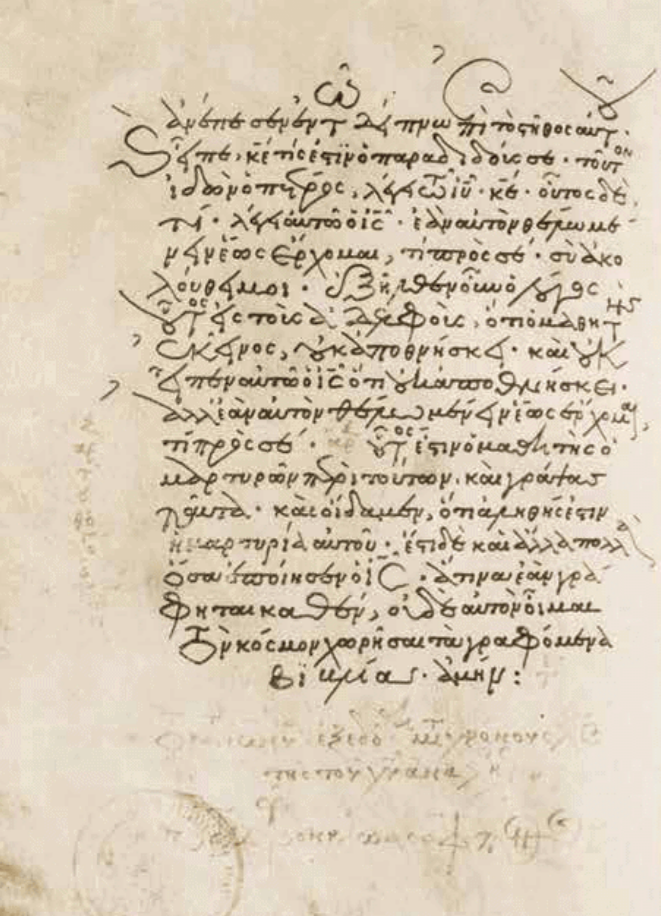 ἀνέπεσεν ἐν τῷ δείπνω ἐπὶ τὸ στῆθος αὐτ·
εἶπε· κ̅ε̅ τίς ἐστιν ὁ παραδιδούς σε· τοῦτον
ἰδὼν ὁ πέτρος, λέγει τῶ ι̅υ̅· κ̅ε̅· οὗτος δὲ
τί· λέγει αὐτῶ ὁ ι̅ς̅· ἐὰν αὐτὸν θέλω μέ
νειν ἕως ἔρχομαι, τί πρὸς σέ· σὺ ἀκο
λούθει μοι· ἐξῆλθεν οὖν ὁ λόγος
οὗτος εἰς τοὺς ἀδελφοὺς, ὅτι ὁ μαθητὴς
ἐκεῖνος, οὐκ ἀποθνήσκει· καὶ οὐκ
εἶπεν αὐτῶ ὁ ι̅ς̅ ὅτι οὐκ ἀποθνήσκει·
ἀλλ' ἐὰν αὐτὸν θέλω μένειν ἕως ἔρχομαι,
τί πρὸς σέ· οὗτός ἐστιν ὁ μαθητὴς ὁ
μαρτυρῶν περὶ τούτων, καὶ γράψας
ταῦτα· καὶ οἴδαμεν, ὅτι ἀληθής ἐστιν
ἡ μαρτυρία αὐτοῦ· ἔστι δὲ καὶ ἄλλα πολλὰ
ὅσα ἐποίησεν ὁ ι̅ς̅· ἅτινα ἐὰν γρά
φηται καθ' ἕν, οὐδὲ αὐτὸν οἶμαι
τὸν κόσμον χωρῆσαι τὰ γραφόμενα
βιβλία· ἀμήν: